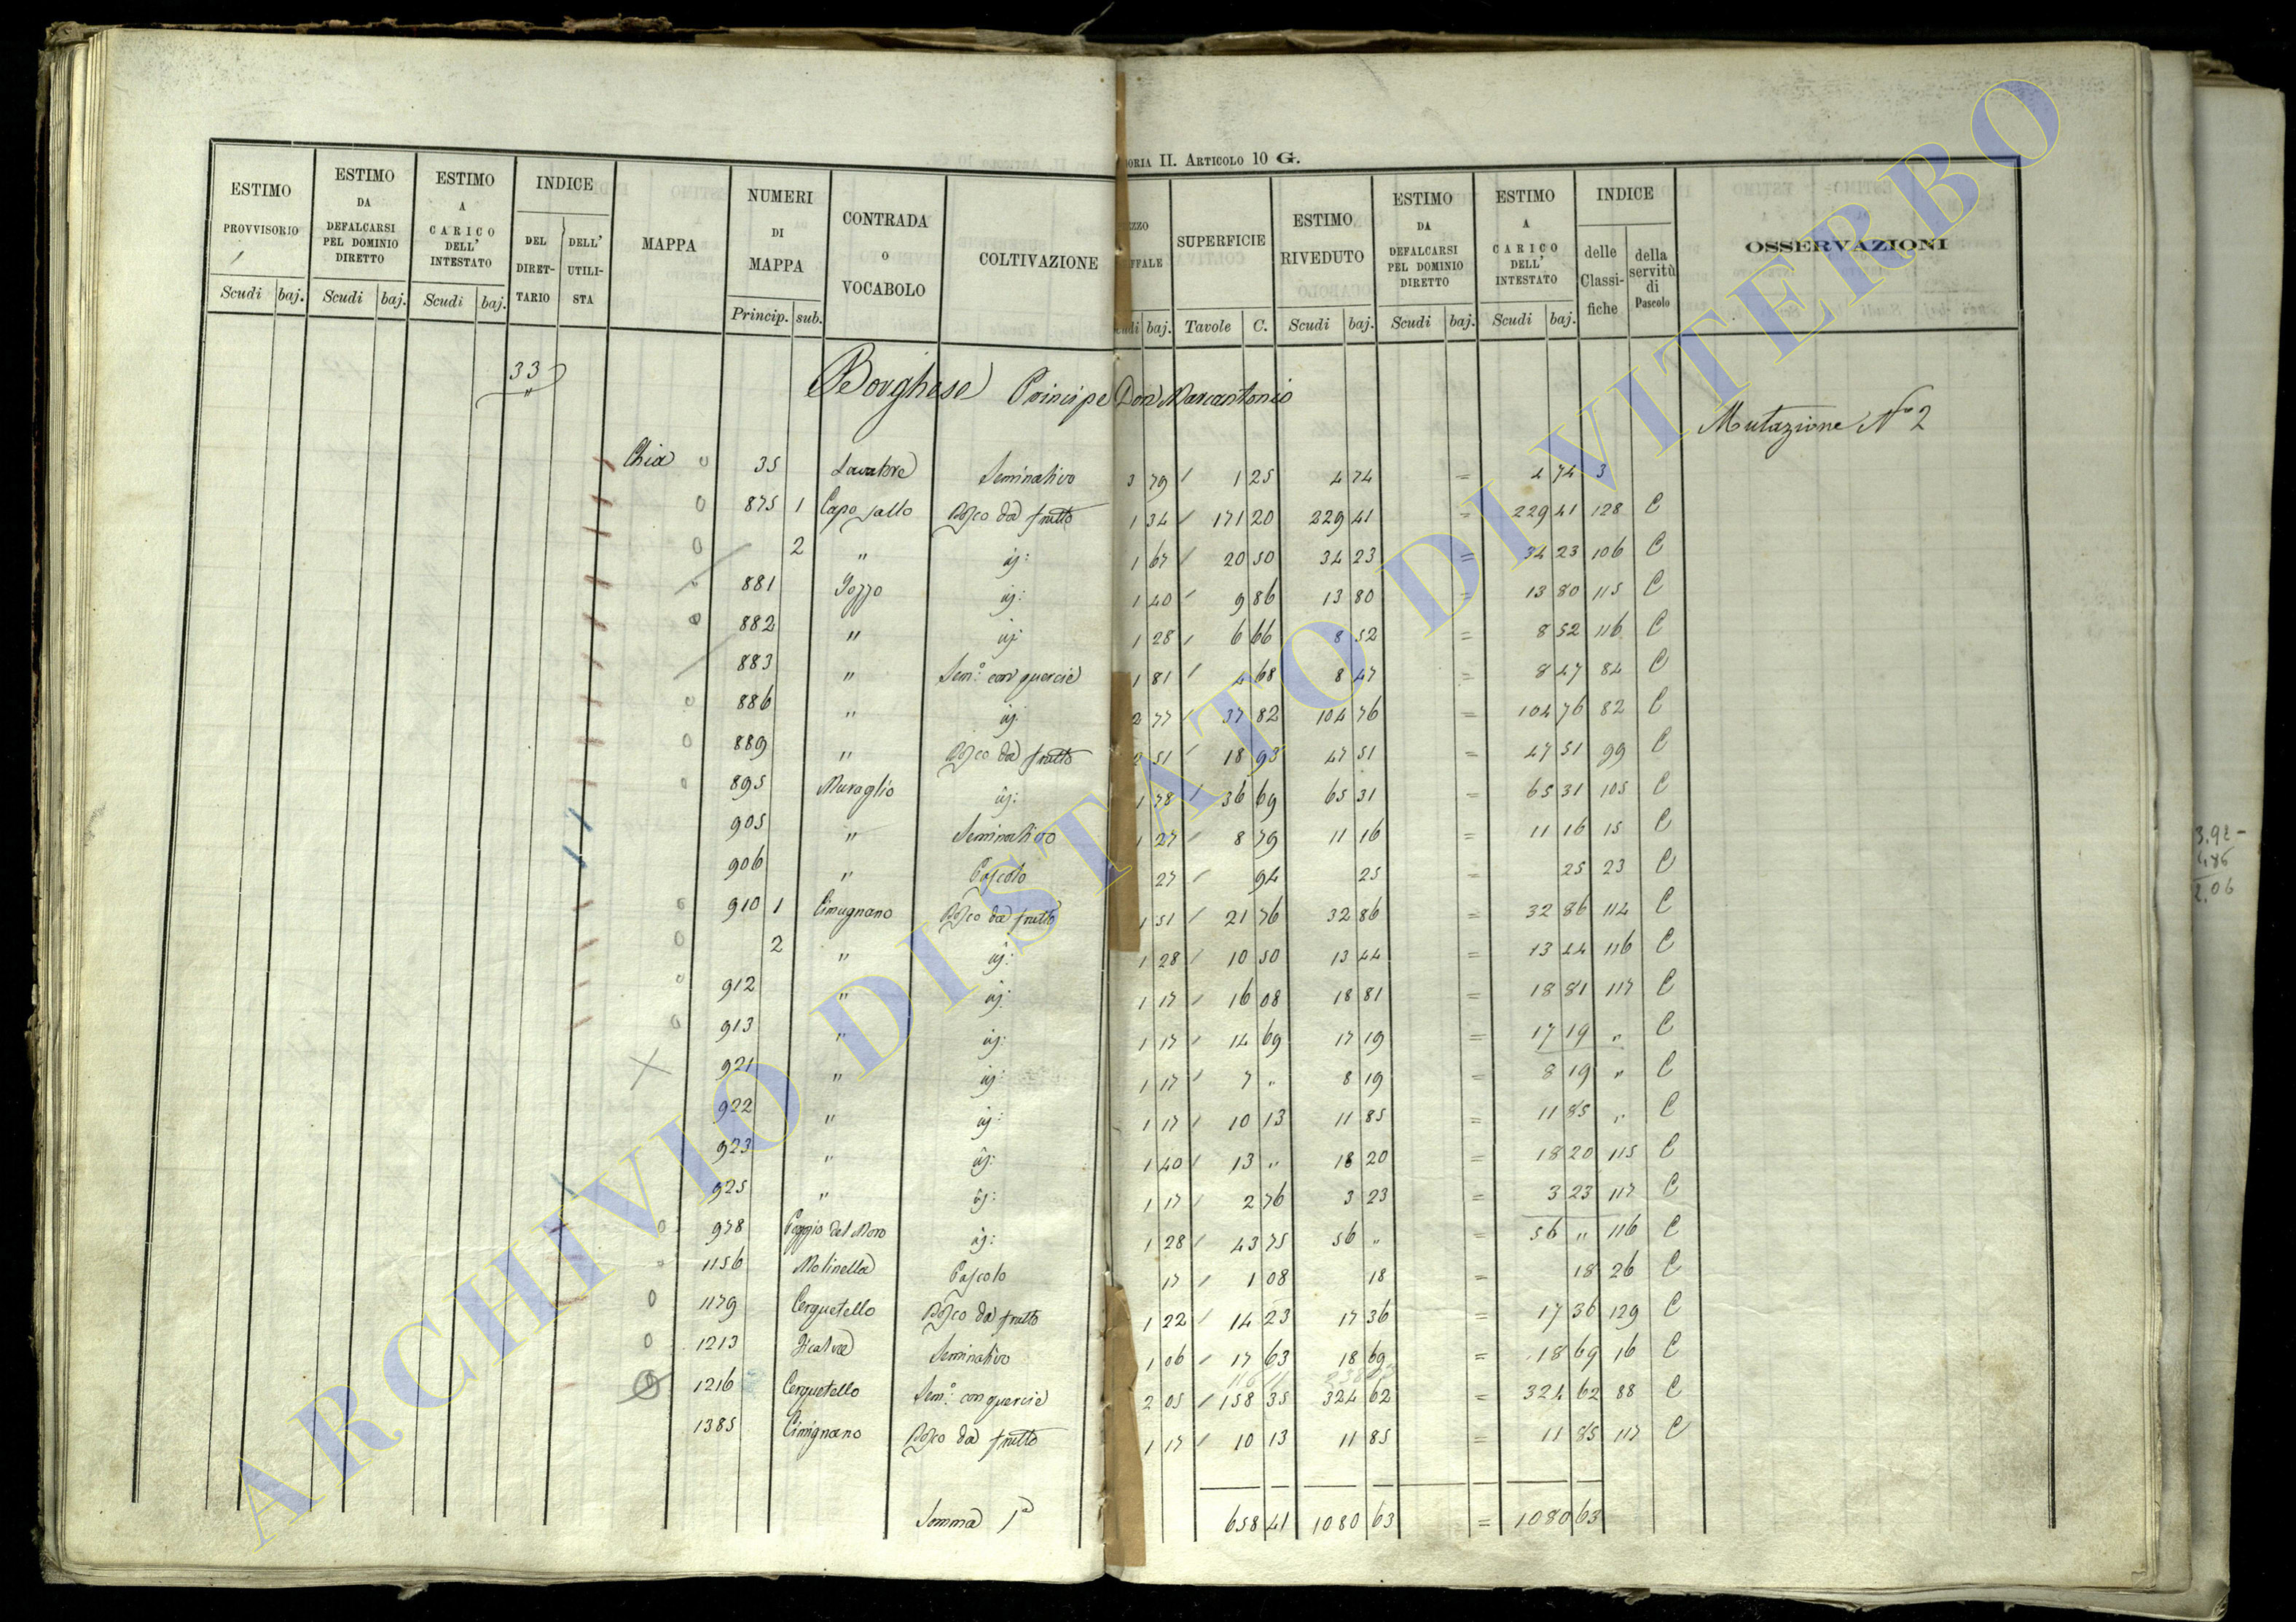 ORIA II. ARTICOLO 10 G.
ESTIMO PROVVISORIO Scudi baj. | ESTIMO DA DEFALCARSI PEL DOMINIO DIRETTO Scudi baj. | ESTIMO A CARICO DELL' INTESTATO Scudi baj. | INDICE DEL DIRET- TARIO | DELL' UTILI- STA | MAPPA | NUMERI DI MAPPA Princip. sub. | CONTRADA O VOCABOLO | COLTIVAZIONE | EZZO FFALE udi baj. | SUPERFICIE Tavole C. | ESTIMO RIVEDUTO Scudi baj. | ESTIMO DA DEFALCARSI PEL DOMINIO DIRETTO Scudi baj. | ESTIMO A CARICO DELL' INTESTATO Scudi baj. | INDICE delle Classi- fiche | della servitù di Pascolo | OSSERVAZIONI
33 Borghese Principe Don Marcantonio
Mutazione N° 2
Chia 35 Seminativo 3 79 1 25 4 74 = 4 74 3
875 1 Capo fallo Bosco da frutto 1 34 171 20 229 41 = 229 41 128 C
2 " id: 1 67 20 50 34 23 = 34 23 106 C
881 Pozzo id: 1 40 9 86 13 80 = 13 80 115 C
882 " id: 1 28 6 66 8 52 = 8 52 116 C
883 " Sem.° con quercie 1 81 4 68 8 47 = 8 47 84 C
886 " id: 2 77 37 82 104 76 = 104 76 82 C
889 " Bosco da frutto 2 51 18 93 47 51 = 47 51 99 C
895 Muraglio id: 1 78 36 69 65 31 = 65 31 105 C
905 " Seminativo 1 27 8 79 11 16 = 11 16 15 C
906 " Pascolo 27 94 25 = 25 23 C
910 1 Cimugnano Bosco da frutto 1 51 21 76 32 86 = 32 86 114 C
2 " id: 1 28 10 50 13 44 = 13 44 116 C
912 " id: 1 17 16 08 18 81 = 18 81 117 C
913 " id: 1 17 14 69 17 19 = 17 19 " C
921 " id: 1 17 7 " 8 19 = 8 19 " C
922 " id: 1 17 10 13 11 85 = 11 85 " C
923 " id: 1 40 13 " 18 20 = 18 20 115 C
925 " id: 1 17 2 76 3 23 = 3 23 117 C
978 Poggio del Moro id: 1 28 43 75 56 " = 56 " 116 C
1156 Molinella Pascolo 17 1 08 18 = 18 26 C
1179 Cerquetello Bosco da frutto 1 22 14 23 17 36 = 17 36 129 C
1213 Seminativo 1 06 17 63 18 69 = 18 69 16 C
1216 Cerquetello Sem.° con quercie 2 05 158 35 324 62 = 324 62 88 C
1385 Cimignano Bosco da frutto 1 17 10 13 11 85 = 11 85 117 C
Somma 1ª 658 41 1080 63 = 1080 63
2.06
ARCHIVIO DI STATO DI VITERBO